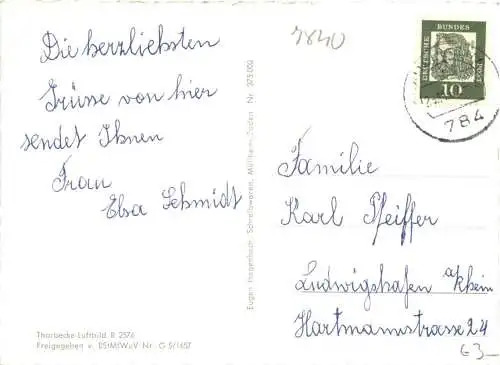 Die herzliebsten
Grüsse von hier
sendet Ihnen
Frau
Elsa Schmidt
Thorbecke-Luftbild R 2576
Freigegeben v. BStMfWuV Nr. G 5/1657
Eugen Hagenbach, Schreibwaren, Müllheim/Baden Nr. 375 009
7840
DEUTSCHE
BUNDES
POST
10
784
Familie
Karl Pfeiffer
Ludwigshafen a/Rhein
Hartmannstrasse 24
63-